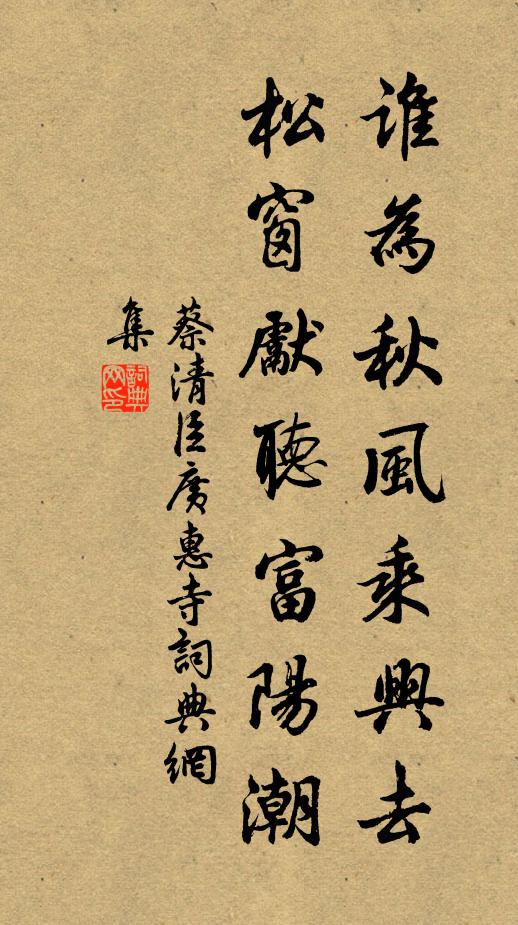 誰為秋風乘興去
松窗獻聽富陽潮
蔡清臣廣惠寺詞典網
集
詞典
网印